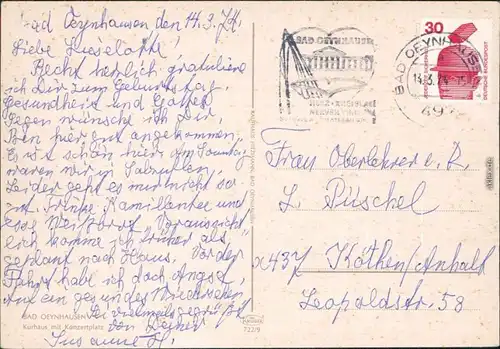 Bad Oeynhausen den 14.3.74.
Liebe Lieselotte!
Recht herzlich gratuliere
ich Dir zum Geburtstag,
Gesundheit und Gottes
Segen wünsche ich Dir,
Bin hier gut angekommen,
Es ist schön hier, am Sonntag
waren wir in
Leider geht es mir nicht so
gut. Trinke Kamillentee und
esse Weißbrot. Voraussicht-
lich komme ich früher als
geplant nach Haus. Vor der
Fahrt habe ich doch Angst.
Auf ein gesundes Wiedersehen
Sei vielmals gegrüßt
von Deiner
Susanne H.
BAD OEYNHAUSEN
Kurhaus mit Konzertplatz
722/9
BAD OEYNHAUSEN
HERZ
30
DEUTSCHE BUNDESPOST
BAD OEYNHAUSEN
14.3.74
497
Frau Oberlehrer e. R.
L. Püschel
x437 Köthen/Anhalt
Leopoldstr. 58